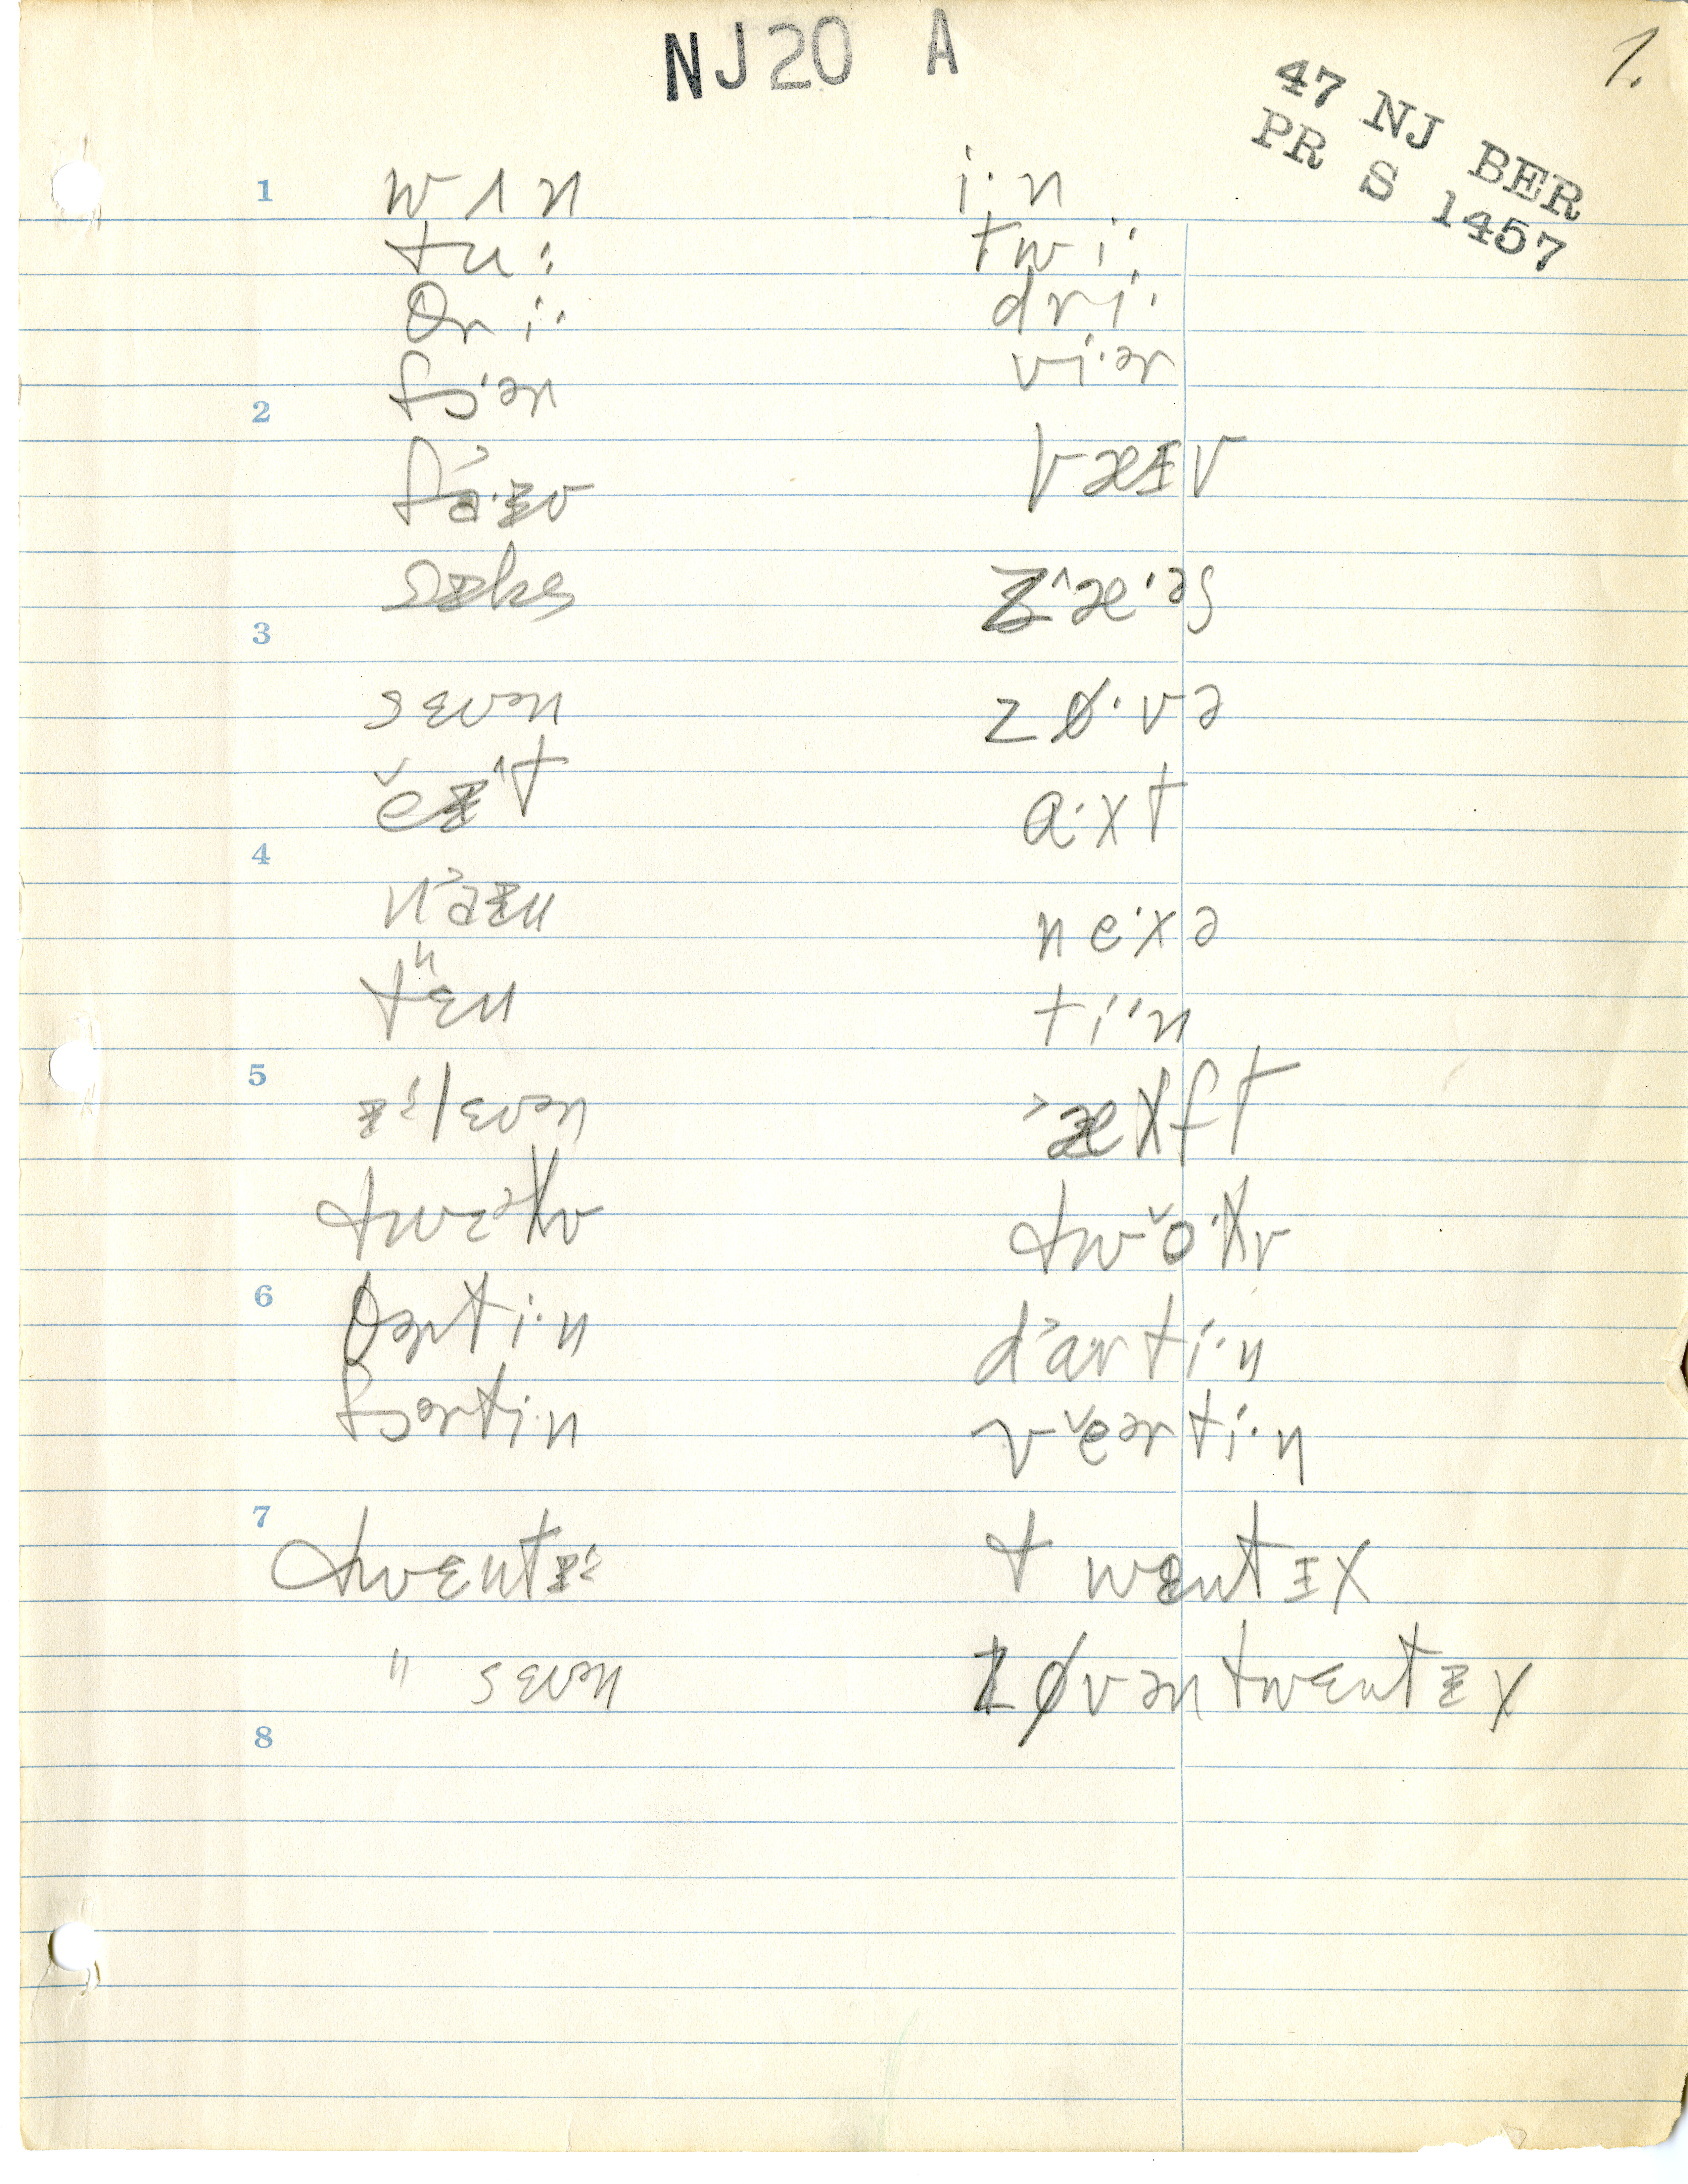 NJ20 A
1.
47 NJ BER
PR S 1457
1 wʌn i·n
tu: twi:
θri· dri·
fɔ·ər vi·ər
2
fa˃·ɪv væɪv
sɪks zæ^·əs
3
sɛvən zø·və
ĕɪ^t a·xt
4
na˃ɪn ne·xə
tɛⁿn ti·'n
5
ɪ:lɛvən ˃æxft
twɛəlv twŏ·lv
6 θərti·n da˃rti·n
fɔərti·n vĕərti·n
7
twɛntɪ: twɛntɪx
" sɛvən zøvəntwɛntɪx
8